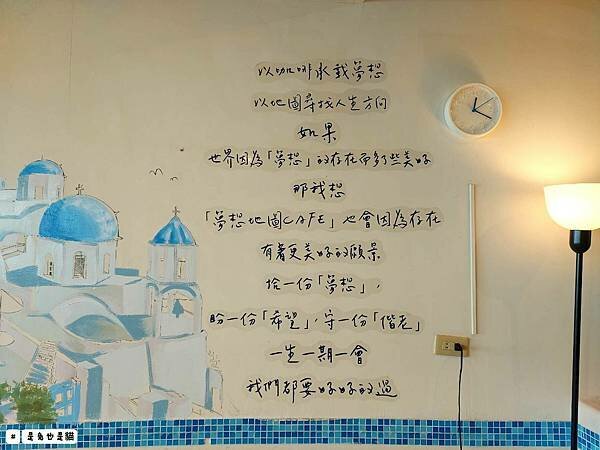 以咖啡承載夢想
以地圖尋找人生方向
如果
世界因為「夢想」的存在而多了些美好
那我想
「夢想地圖CAFE」也會因為存在
有著更美好的願景
拾一份「夢想」,
盼一份「希望」,守一份「偕老」
一生一期一會
我們都要好好的過
# 是兔也是貓